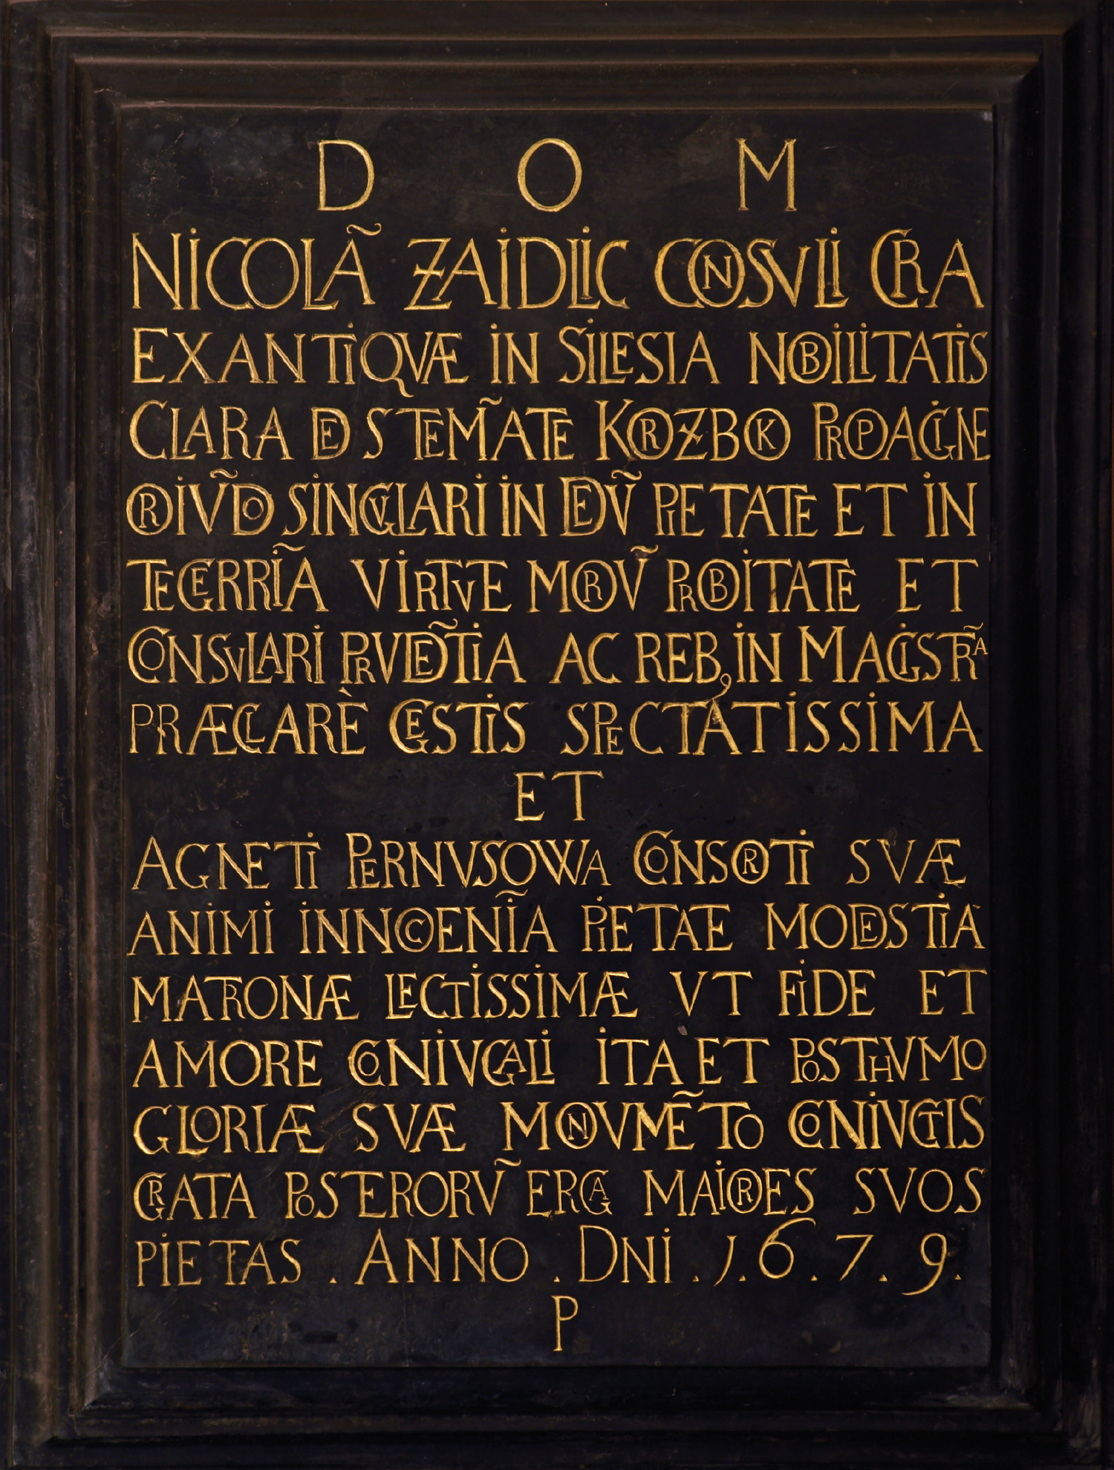 D O M
NICOLÃ ZAIDLIC CONSULI CRA
EXANTIQVÆ IN SILESIA NOBILITATIS
CLARA DE STEM̃ATE KORZBOK PROPAGINE
ORIVD̃O SINGVLARI IN DEVṼ PIETATE ET IN
TEGERRIÃ VIRTVE MORṼ PROBITATE ET
CONSVLARI PRVDẼTIA AC REB, IN MAGISTRÃ
PRÆCLARÈ GESTIS SPECTATISSIMA
ET
AGNETI PERNVSOWA CONSORTI SVÆ
ANIMI INNOCENĨA PIETAE MODESTIA
MATRONÆ LECTISSIMÆ VT FIDE ET
AMORE CONIVGALI ITA ET POSTHVMO
GLORIÆ SVÆ MONVMẼTO CONIVGTIS
GRATA POSTERORṼ ERGA MAIORES SVOS
PIETAS . ANNO . DNI . 1.6.7.9.
P